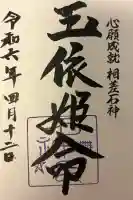 心願成就 相差石神
玉依姫命
令和六年四月十二日